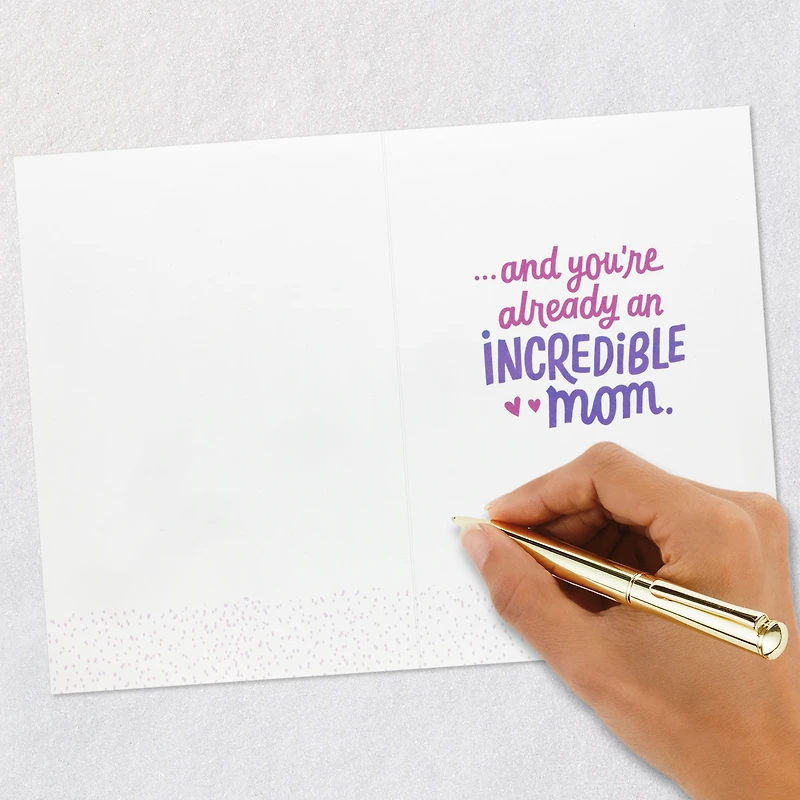 ...and you're
already an
iNCREDiBLE
mom.